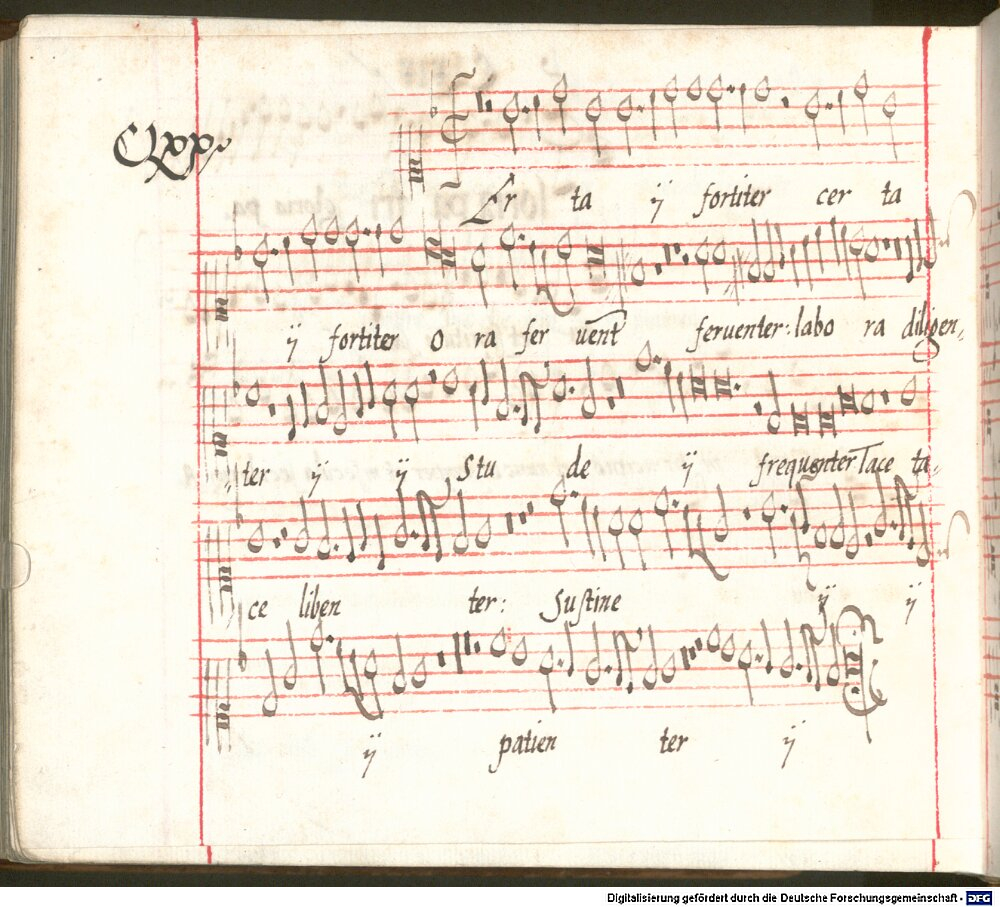 CXXX
Er ta ij fortiter cer ta
ij fortiter o ra fer uent feruenter: labo ra diligen,,
,,ter ij ij Stu de ij frequenter Tace ta,,
ce liben ter: Sustine ij ij
ij patien ter ij
Digitalisierung gefördert durch die Deutsche Forschungsgemeinschaft - DFG